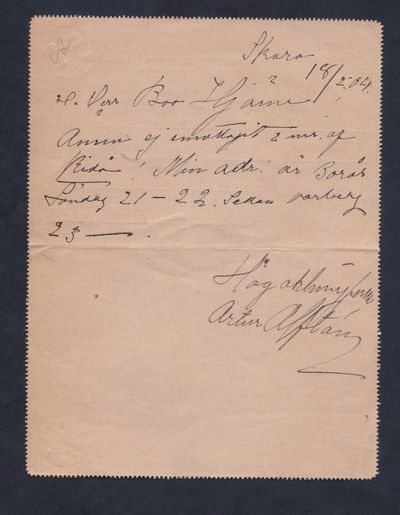 Skara
18/2.04.
H. Herr Boo Hjärne!
Ännu ej emottagit 2 nr. af
Ridå! Min adr. är Borås
Söndag 21 – 22. Sedan Varberg
23 — .
Högaktningsfullt
Artur